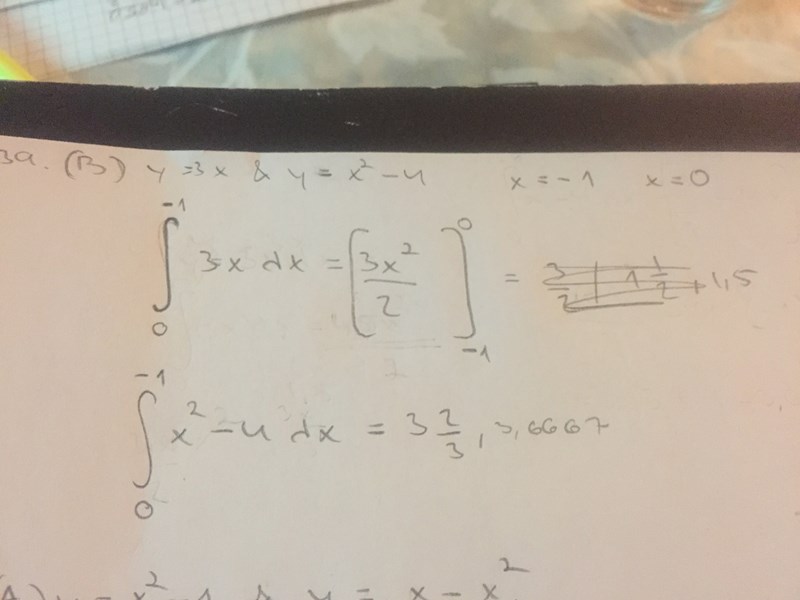 3a. (B) y=3x & y=x²-4 x=-1 x=0
∫₀⁻¹ 3x dx = [3x²/2]₋₁⁰ = 1,5
∫₀⁻¹ x²-4 dx = 3 2/3, 3,6667
x² & y = x - x²